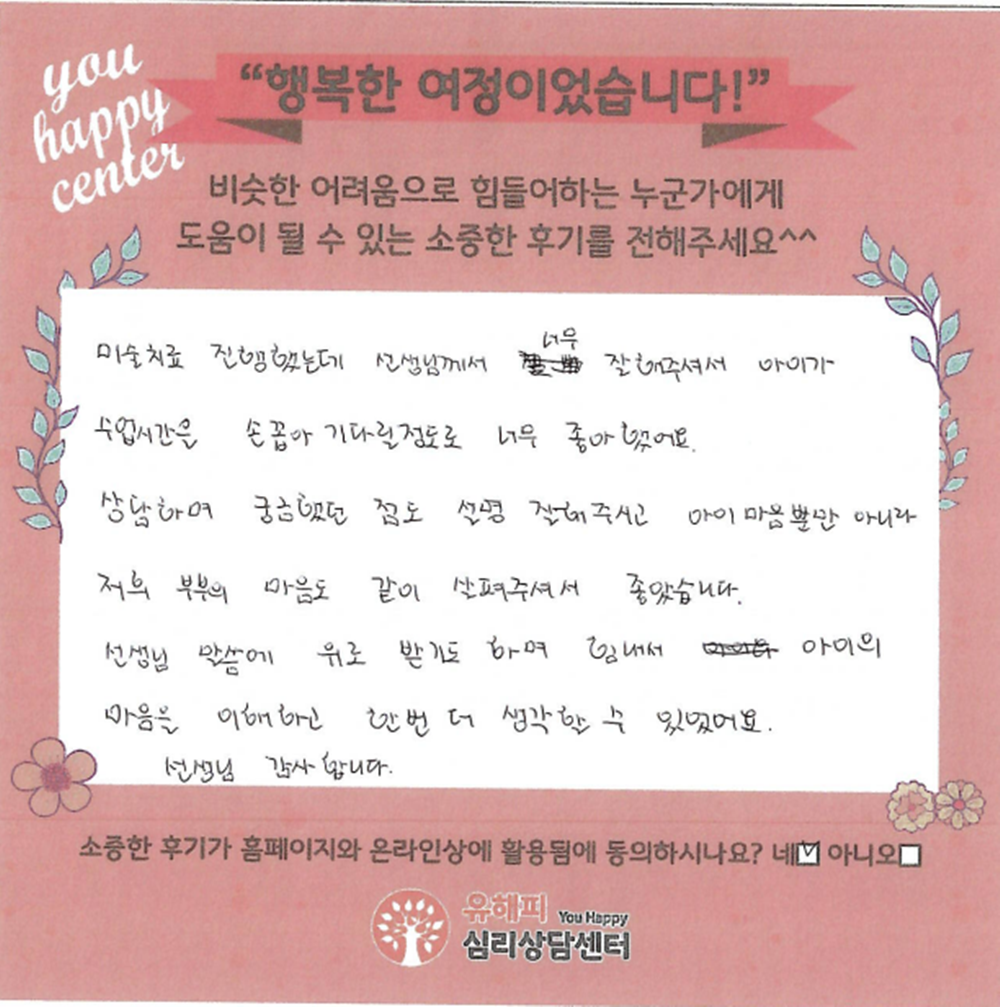 you
happy
center
“행복한 여정이었습니다!”
비슷한 어려움으로 힘들어하는 누군가에게
도움이 될 수 있는 소중한 후기를 전해주세요^^
미술치료 진행했는데 선생님께서 너무 잘해주셔서 아이가
수업시간을 손꼽아 기다릴정도로 너무 좋아했어요.
상담하며 궁금했던 점도 설명 잘해주시고 아이 마음뿐만 아니라
저희 부부의 마음도 같이 살펴주셔서 좋았습니다.
선생님 말씀에 위로 받기도 하며 힘내서 아이의
마음을 이해하고 한번 더 생각할 수 있었어요.
선생님 감사합니다.
소중한 후기가 홈페이지와 온라인상에 활용됨에 동의하시나요? 네☑ 아니오☐
유해피 You Happy
심리상담센터